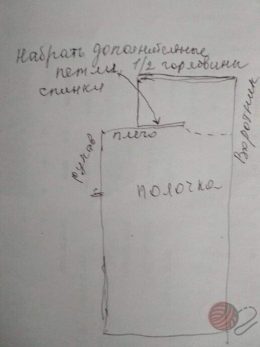 Набрать дополнительные
петли 1/2 горловины
спинки
плечо
Рукав
Воротник
полочка